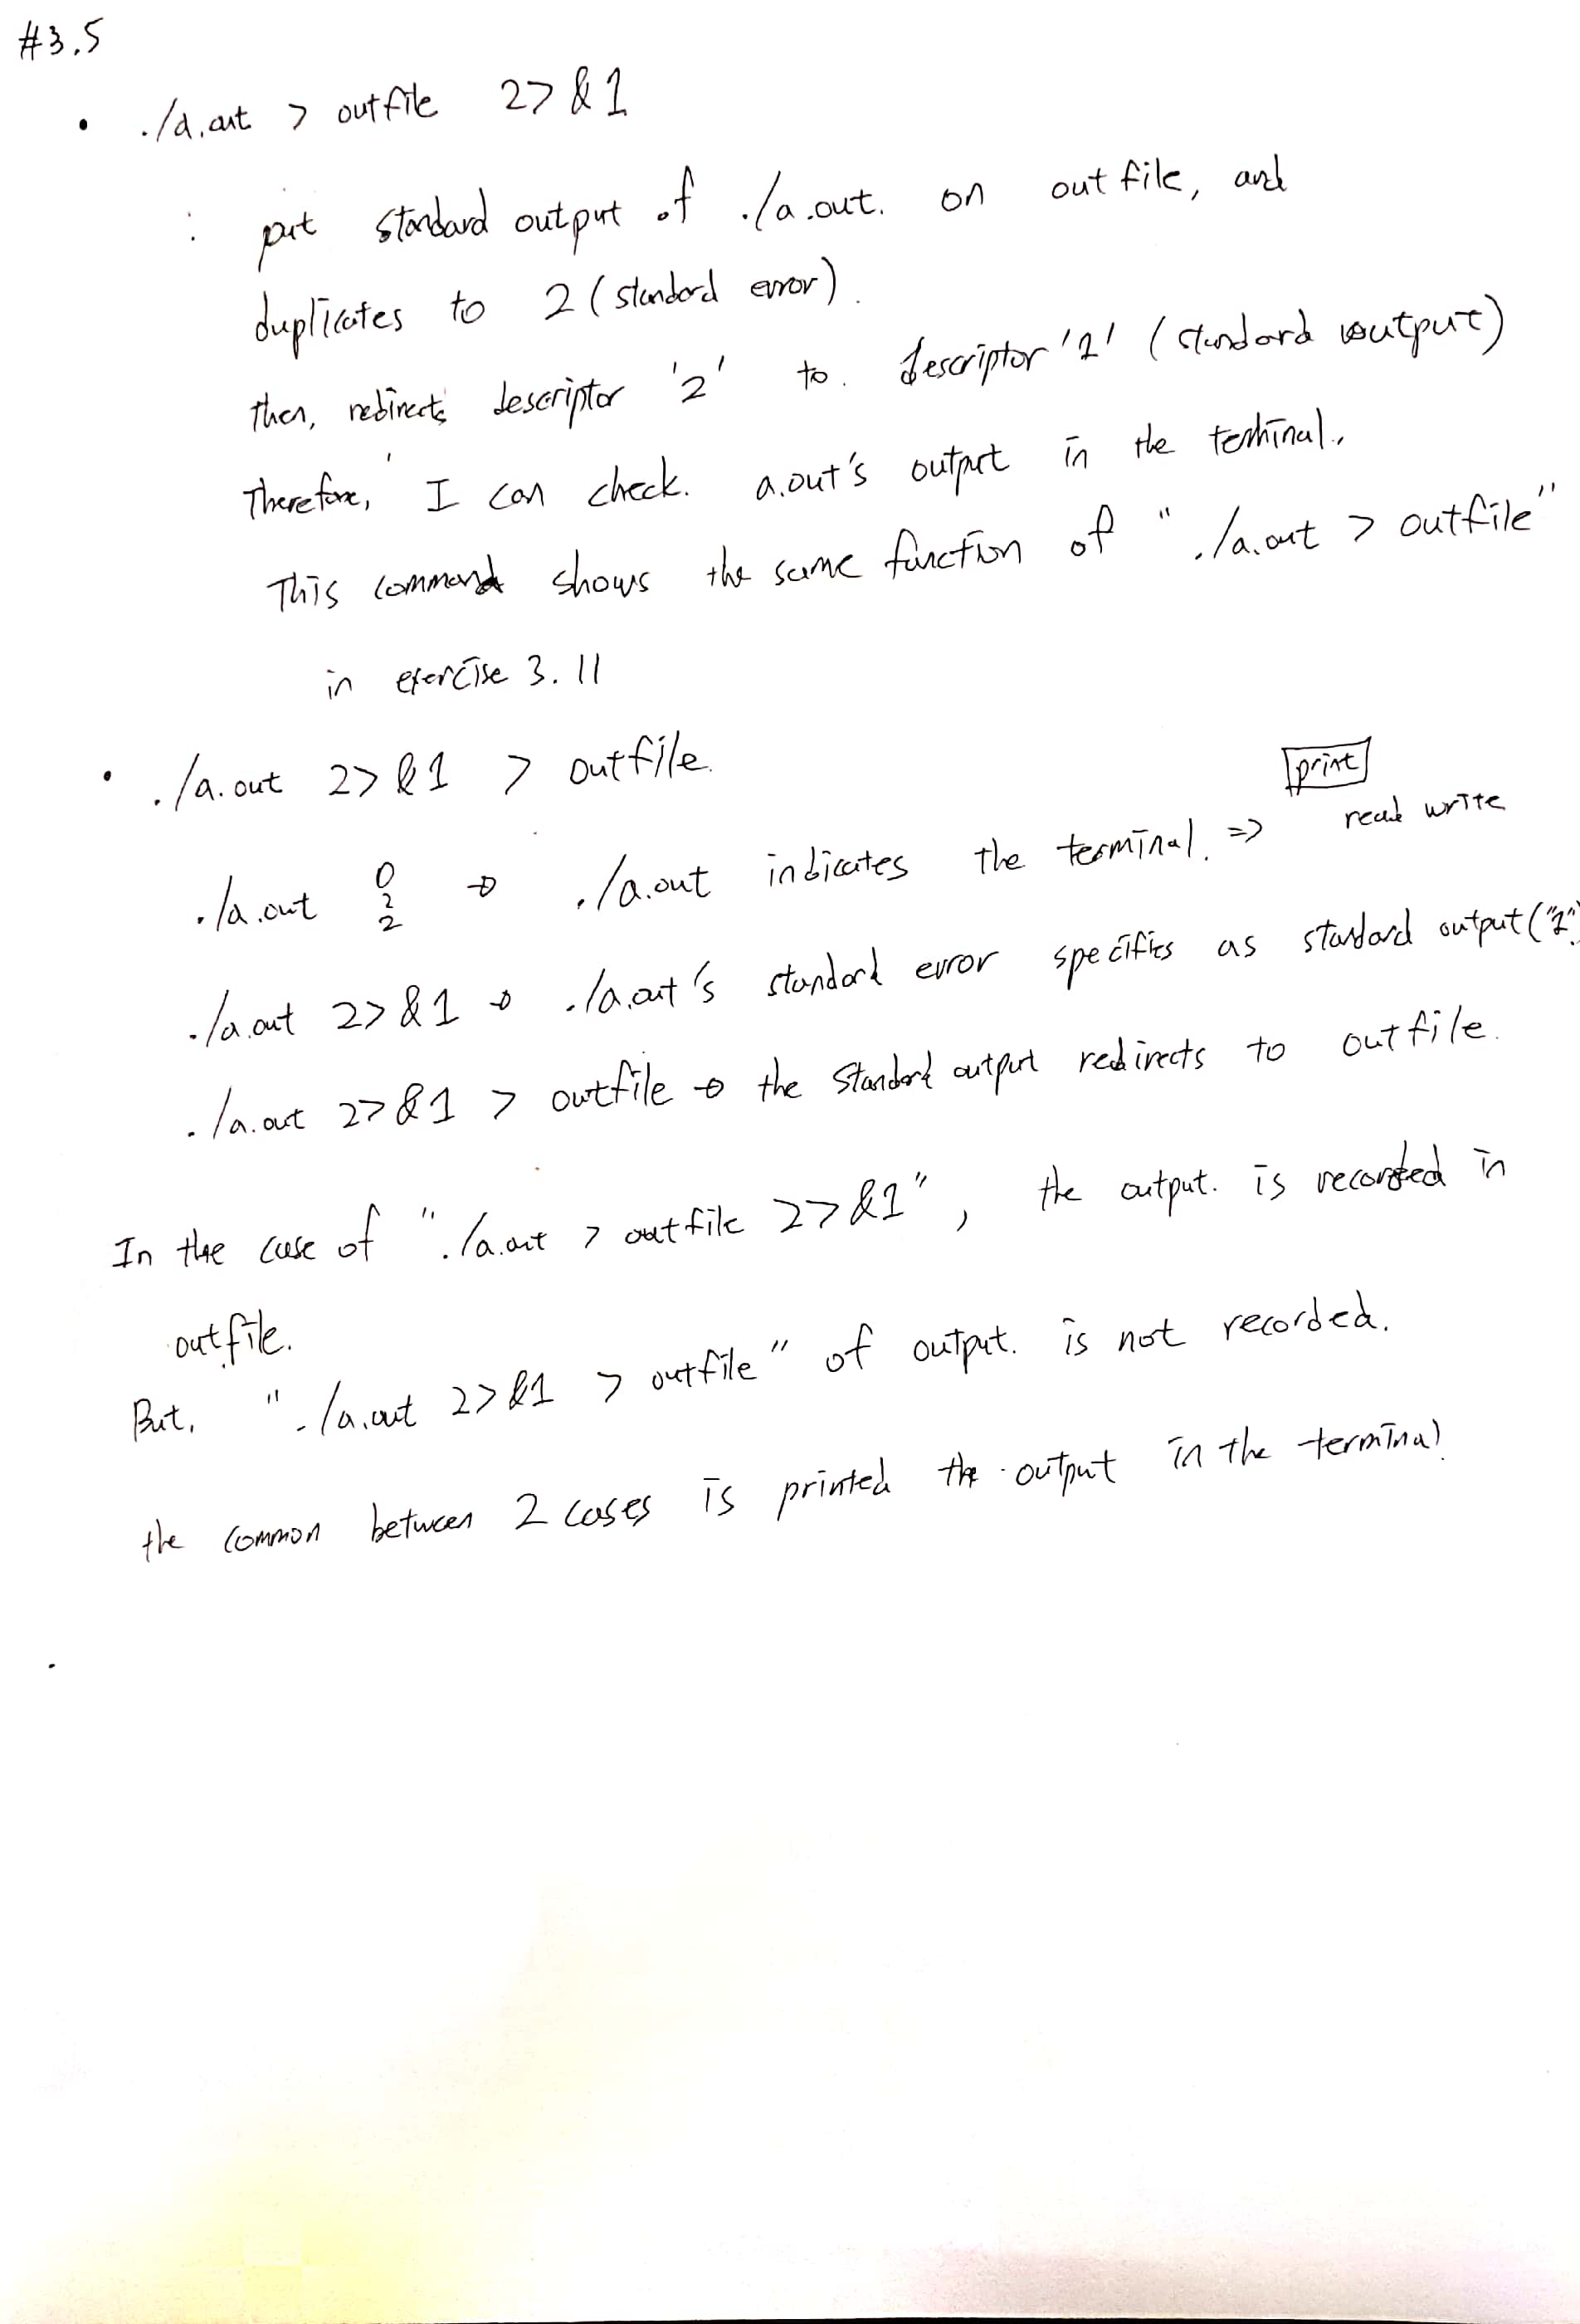 #3.5
• ./a.out > outfile 2>&1
: put standard output of ./a.out. on outfile, and
duplicates to 2 (standard error).
then, redirects descriptor '2' to. descriptor '1' (standard output)
Therefore, I can check. a.out's output in the terminal.
This command shows the same function of "./a.out > outfile"
in exercise 3.11
• ./a.out 2>&1 > outfile.
print
./a.out 0 → ./a.out indicates the terminal. => read write
2
2
./a.out 2>&1 → ./a.out's standard error specifies as standard output ("1")
./a.out 2>&1 > outfile → the standard output redirects to outfile.
In the case of "./a.out > outfile 2>&1", the output. is recorded in
outfile.
But, "./a.out 2>&1 > outfile" of output. is not recorded.
the common between 2 cases is printed the output in the terminal.